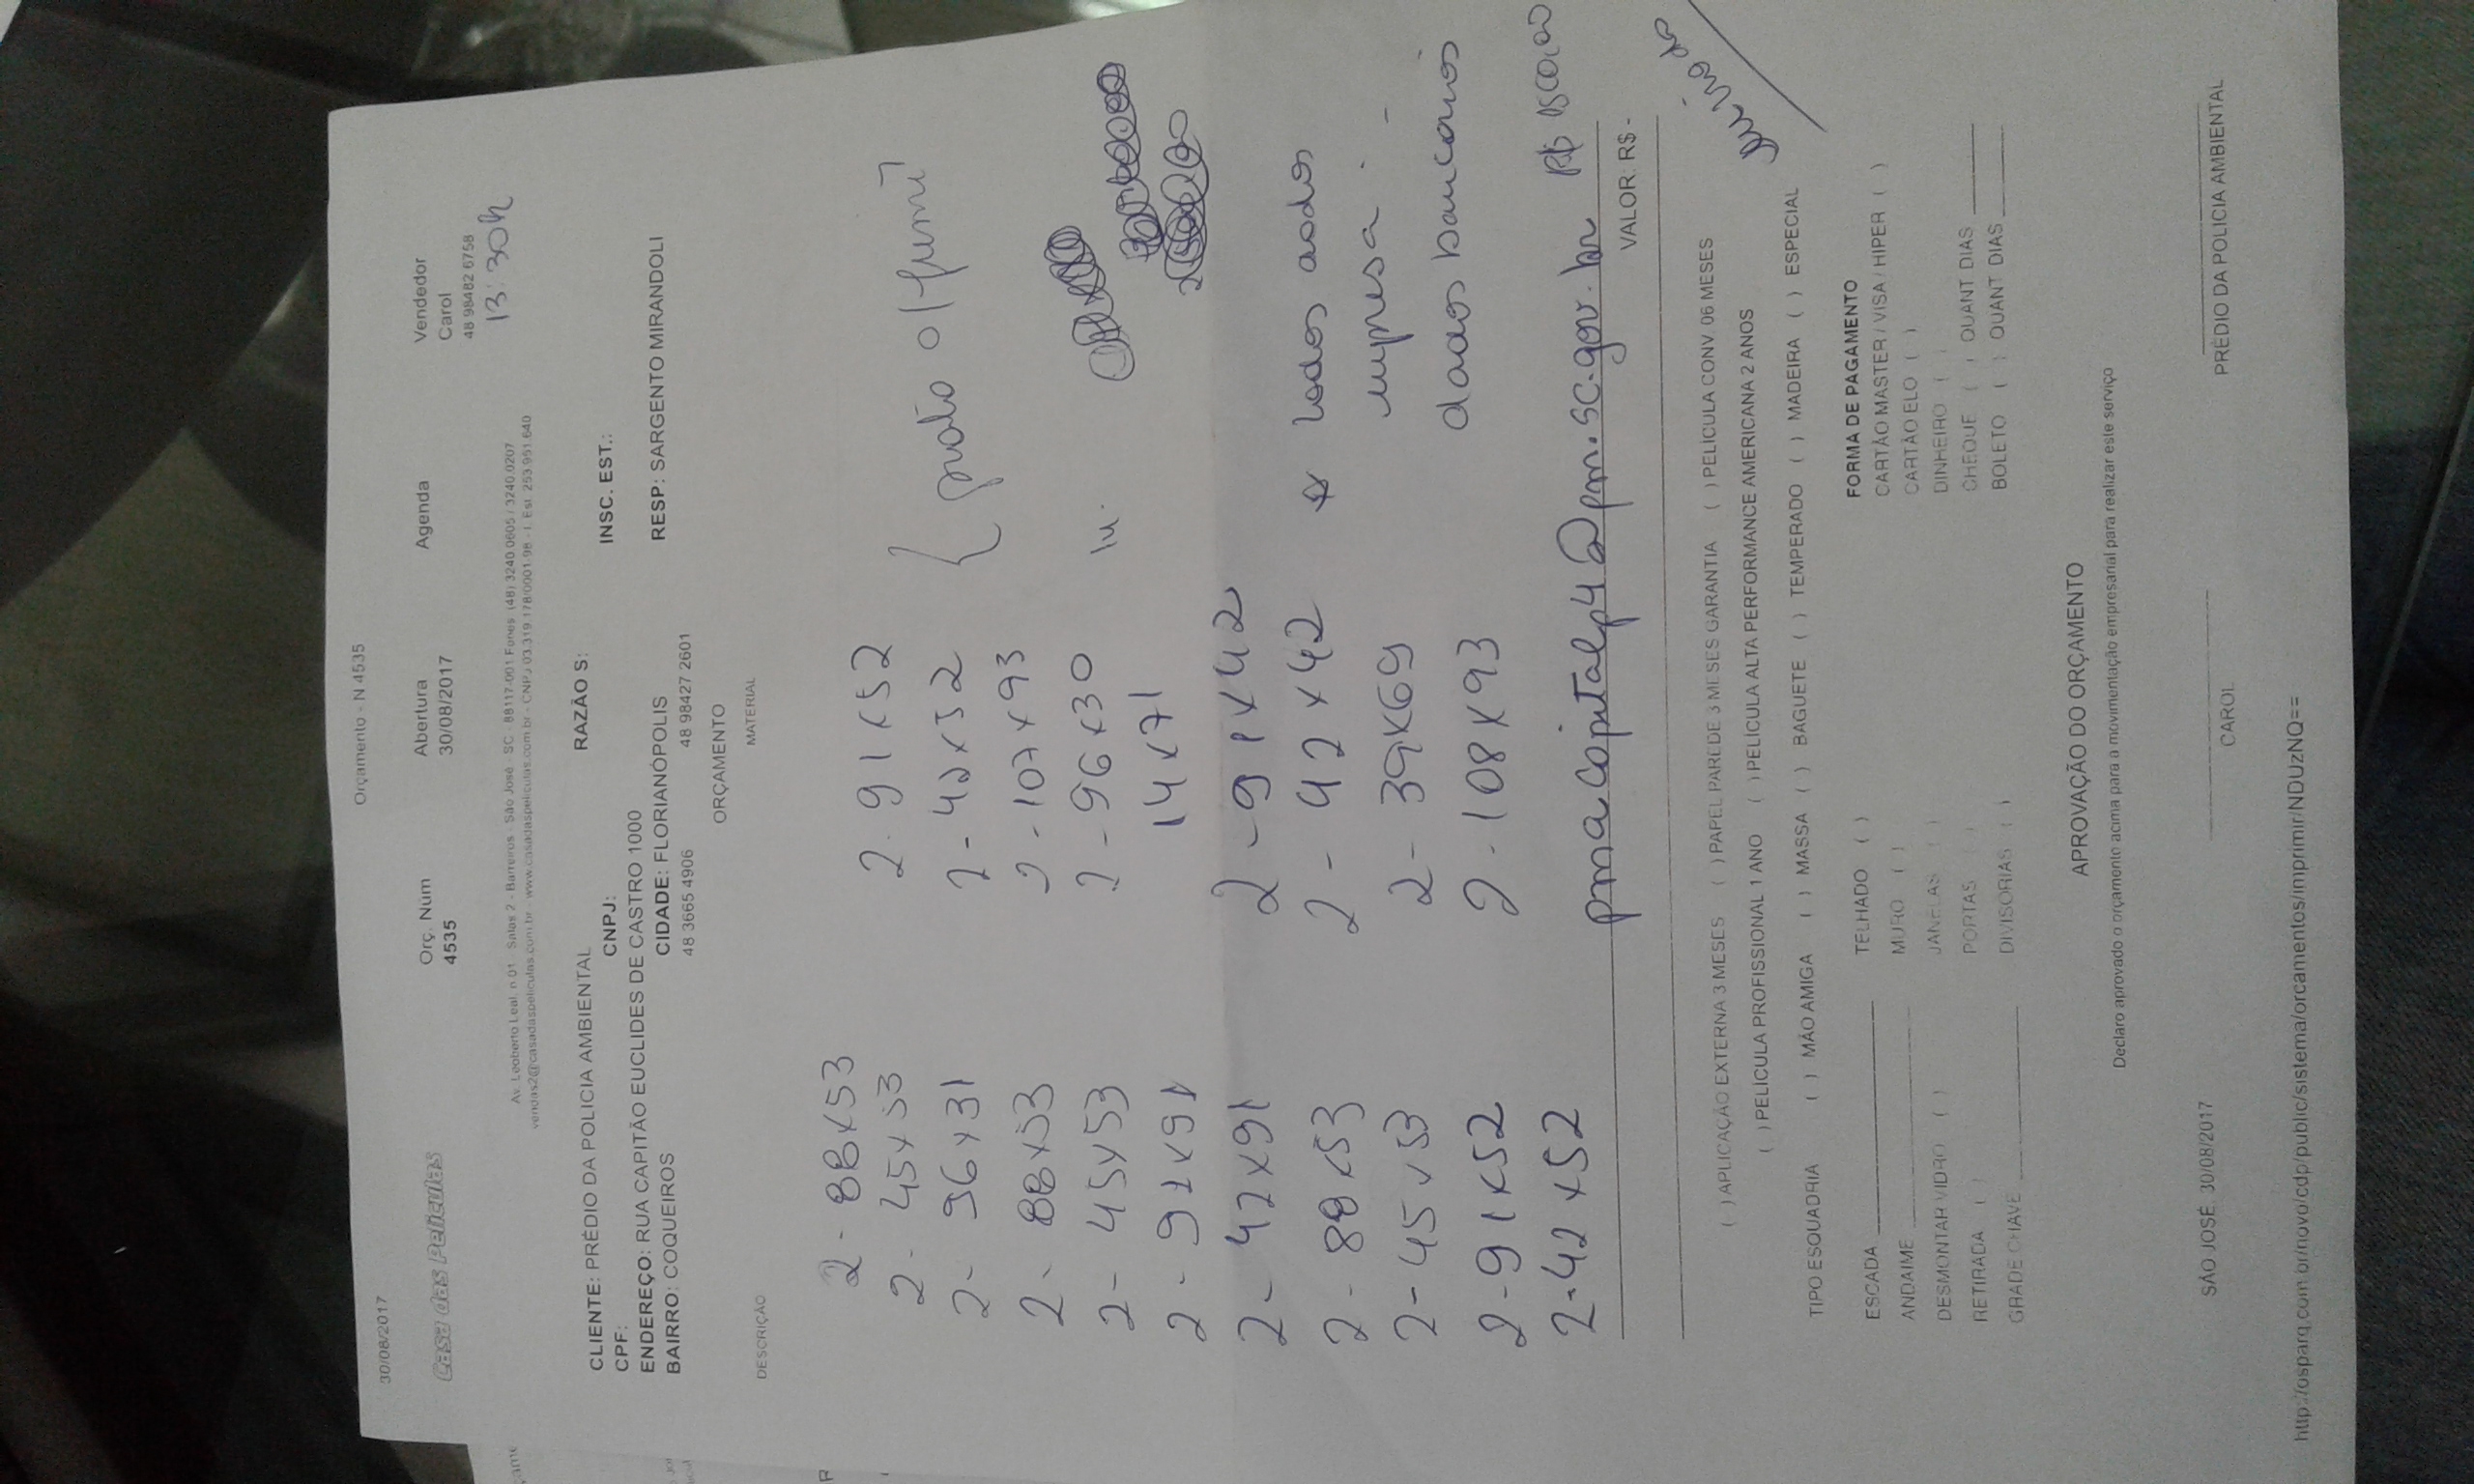 30/08/2017
Orçamento - N 4535
Casa das Películas
Orç. Núm
4535
Abertura
30/08/2017
Agenda
Vendedor
Carol
48 98482 6758
13:30h
Av. Leoberto Leal, n 01 Salas 2 - Barreiros - São José - SC 88117-001 Fones (48) 3240.0605 / 3240.0207
vendas2@casadaspeliculas.com.br - www.casadaspeliculas.com.br - CNPJ 03.319.178/0001-98 - I. Est 253.951.640
CLIENTE: PRÉDIO DA POLICIA AMBIENTAL
RAZÃO S:
CPF:
CNPJ:
INSC. EST.:
ENDEREÇO: RUA CAPITÃO EUCLIDES DE CASTRO 1000
BAIRRO: COQUEIROS
CIDADE: FLORIANÓPOLIS
RESP: SARGENTO MIRANDOLI
48 3665 4906
48 98427 2601
ORÇAMENTO
DESCRIÇÃO
MATERIAL
2 - 88x53
2 - 45x53
2 - 96x31
2 - 88x53
2 - 45x53
2 - 92x91
2 - 42x91
2 - 88x53
2 - 45x53
2 - 91x52
2 - 42x52
2 - 91x52
2 - 42x52
2 - 107x93
2 - 96x30
14x71
2 - 91x42
2 - 42x42
2 - 39x69
2 - 108x93
dados bancarios
pmacapitalp4@pm.sc.gov.br
VALOR: R$ -
( ) APLICAÇÃO EXTERNA 3 MESES ( ) PAPEL PAREDE 3 MESES GARANTIA ( ) PELÍCULA CONV. 06 MESES
( ) PELÍCULA PROFISSIONAL 1 ANO ( ) PELICULA ALTA PERFORMANCE AMERICANA 2 ANOS
TIPO ESQUADRIA ( ) MÃO AMIGA ( ) MASSA ( ) BAGUETE ( ) TEMPERADO ( ) MADEIRA ( ) ESPECIAL
ESCADA
ANDAIME
DESMONTAR VIDRO ( )
RETIRADA ( )
GRADE CHAVE
TELHADO ( )
MURO ( )
JANELAS ( )
PORTAS ( )
DIVISORIAS ( )
FORMA DE PAGAMENTO
CARTÃO MASTER / VISA / HIPER ( )
CARTÃO ELO ( )
DINHEIRO ( )
CHEQUE ( ) QUANT DIAS
BOLETO ( ) QUANT DIAS
APROVAÇÃO DO ORÇAMENTO
Declaro aprovado o orçamento acima para a movimentação empresarial para realizar este serviço
SÃO JOSÉ 30/08/2017
CAROL
PRÉDIO DA POLICIA AMBIENTAL
http://osparq.com.br/novo/cdp/public/sistema/orcamentos/imprimir/NDUzNQ==